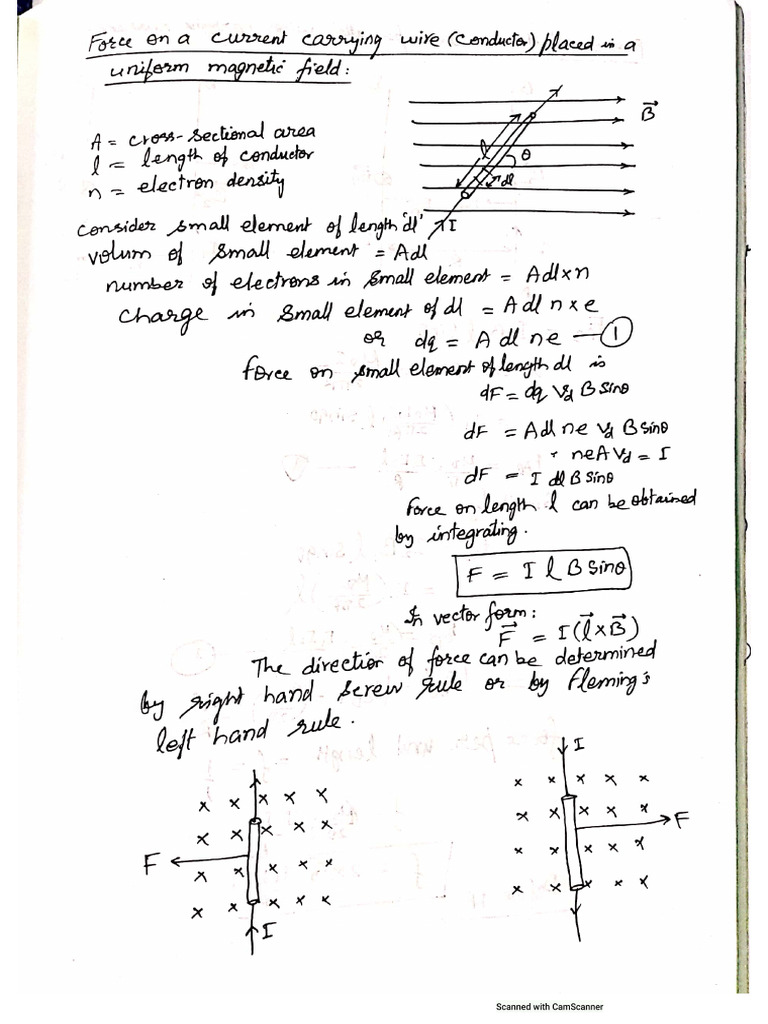 Force on a current carrying wire (conductor) placed in a
uniform magnetic field:
A = cross-sectional area
l = length of conductor
n = electron density
B⃗
l
θ
dl
I
consider small element of length 'dl'
volum of small element = Adl
number of electrons in small element = Adl×n
charge in small element of dl = Adl n×e
or dq = A dl ne —①
force on small element of length dl is
dF = dq Vd B sinθ
dF = Adl ne Vd B sinθ
∵ neAVd = I
dF = I dl B sinθ
Force on length l can be obtained
by integrating.
F = I l B sinθ
In vector form:
F⃗ = I(l⃗×B⃗)
The direction of force can be determined
by right hand screw rule or by Fleming's
left hand rule.
I
× × × × ×
× × × × ×
F
× × × × ×
× × × × ×
I
× × × × ×
× × × × ×
F
× × × × ×
× × × × ×
Scanned with CamScanner